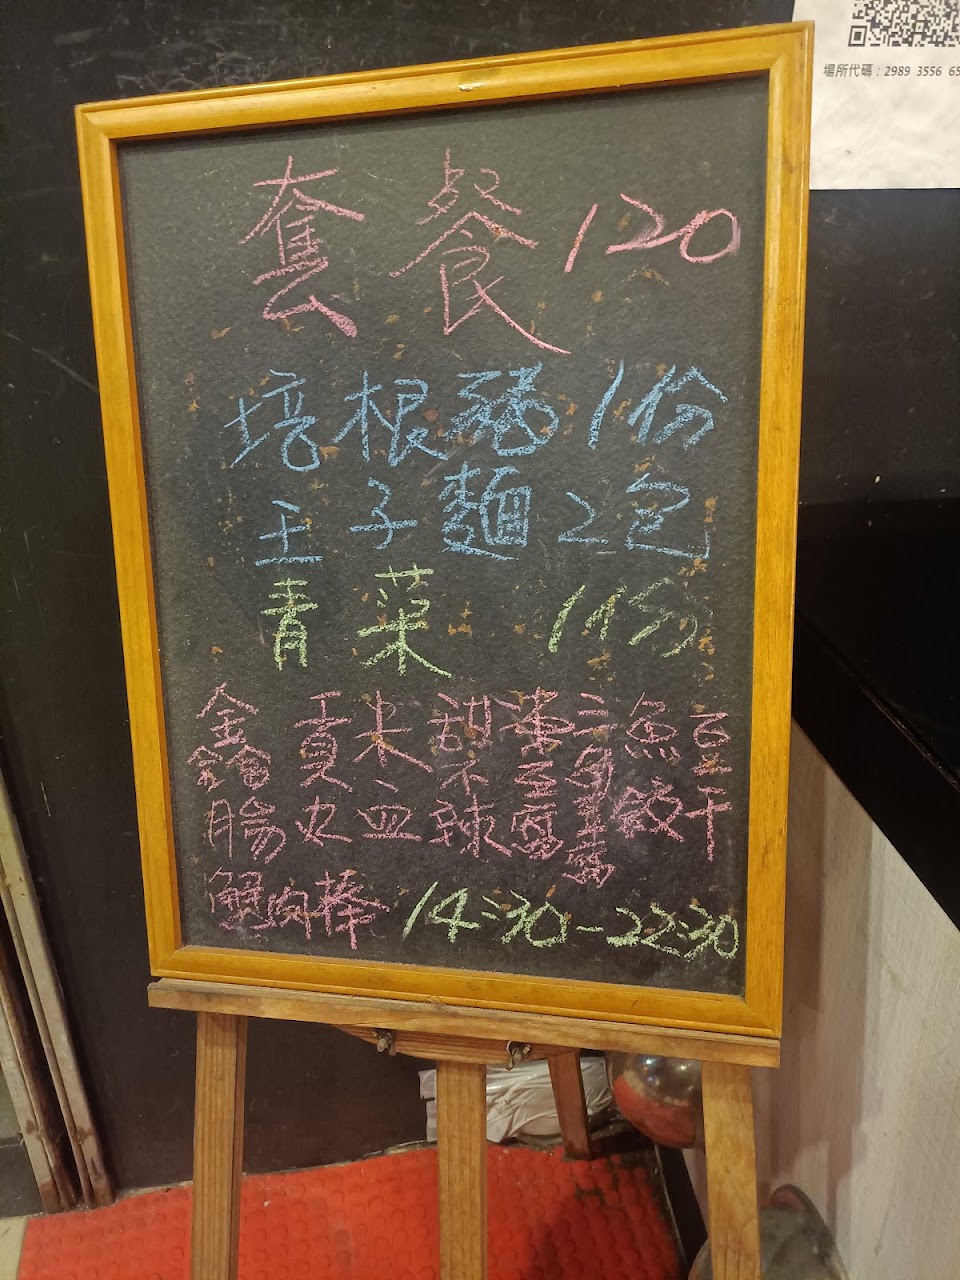 場所代碼：2989 3556 65
套餐 120
培根 1份
王子麵 2包
青菜 1份
鑫鑫腸
貢丸
米血
甜不辣
凍豆腐
三角豆腐
魚餃
豆干
蟹肉棒 14:30-22:30